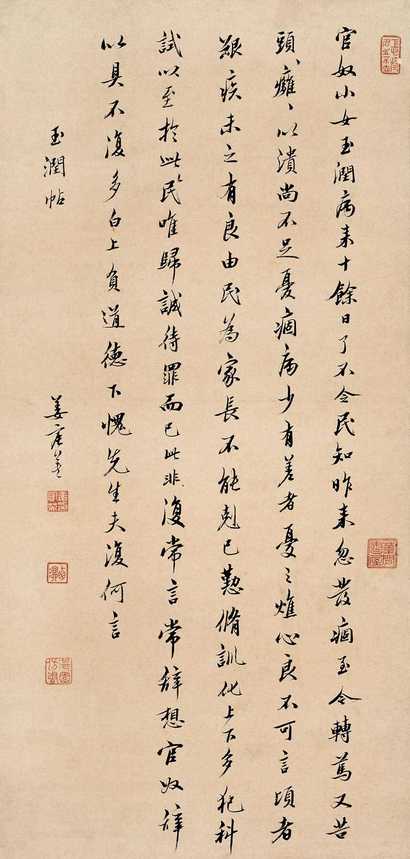 官奴小女玉潤病来十餘日了不令民知昨来忽發痼至今轉篤又苦
頭癰、以潰尚不足憂痼病少有差者憂之燋心良不可言頃者
艱疾未之有良由民為家長不能剋己懃脩訓化上下多犯科
試以至於此民唯歸誠待罪而已此非復常言常辭想官奴辭
以具不復多白上負道德下愧先生夫復何言
玉潤帖
姜宸英